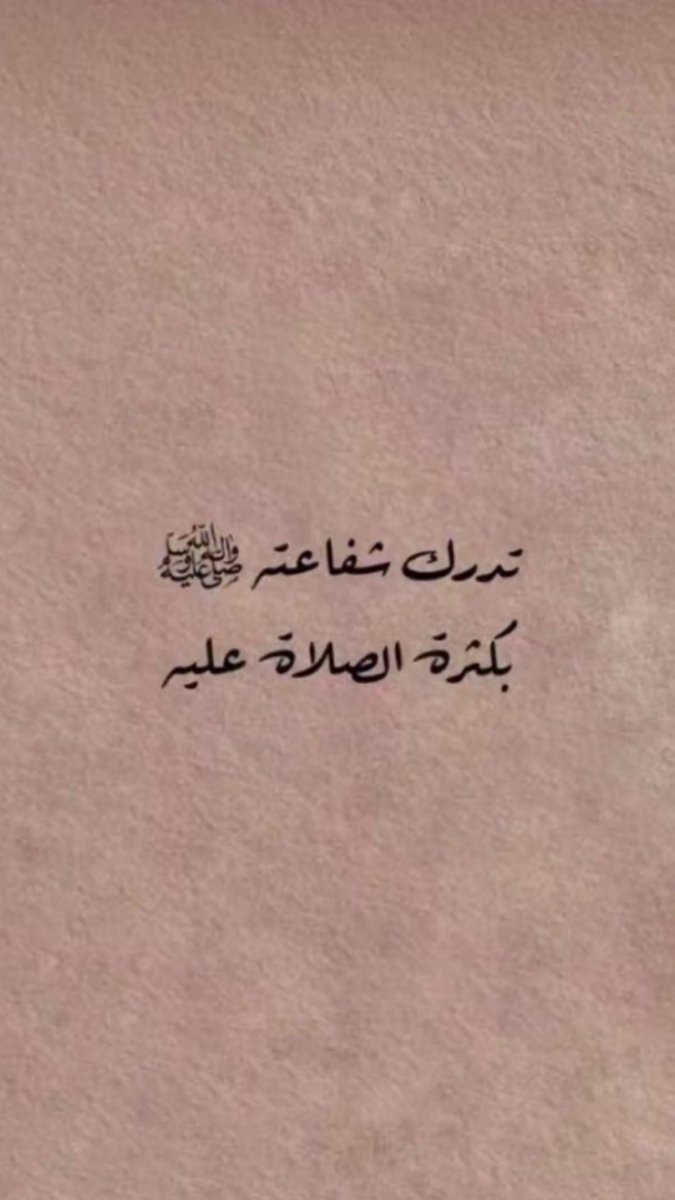 تدرك شفاعته ﷺ
بكثرة الصلاة عليه